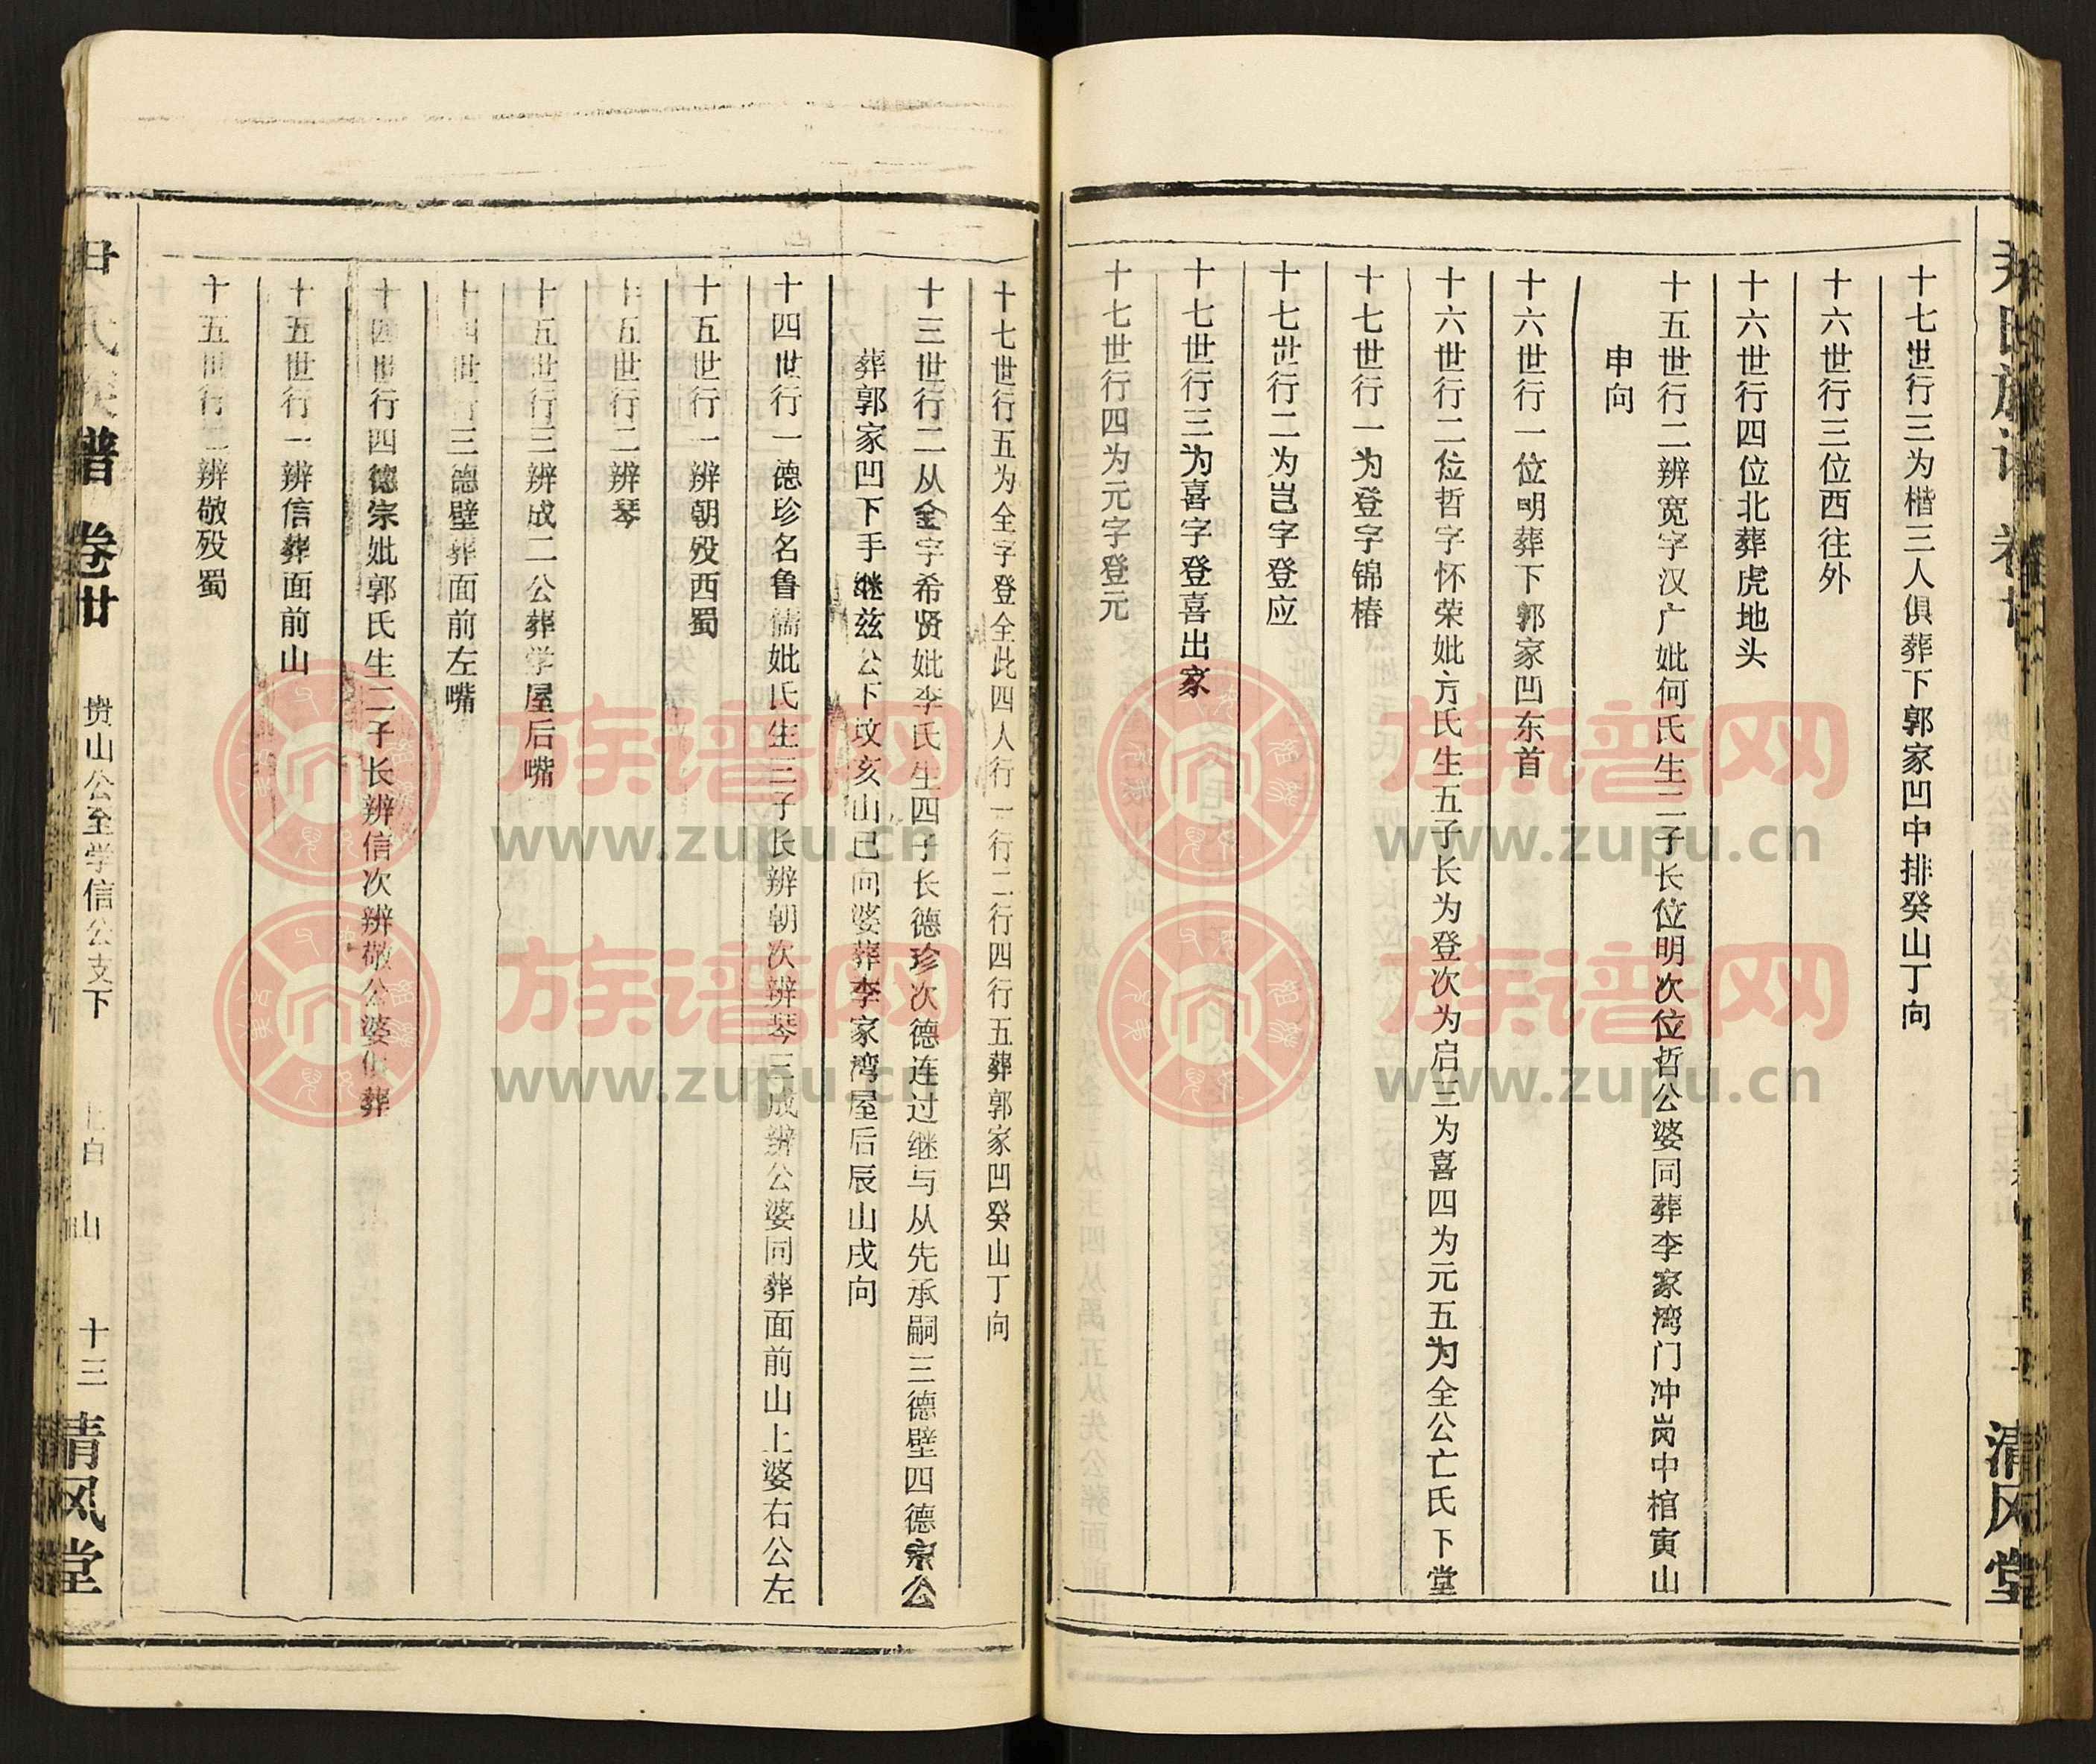 十七世行三为楷三人俱葬下郭家凹中排癸山丁向
十六世行三位西往外
十六世行四位北葬虎地头
十五世行二辨宽字汉广妣何氏生二子长位明次位哲公婆同葬李家湾门冲岗中棺寅山
申向
十六世行一位明葬下郭家凹东首
十六世行二位哲字怀荣妣方氏生五子长为登次为启三为喜四为元五为全公亡氏下堂
十七世行一为登字锦椿
十七世行二为岂字登应
十七世行三为喜字登喜出家
十七世行四为元字登元
清风堂
十七世行五为全字登全此四人行一行二行四行五葬郭家凹癸山丁向
十三世行二从全字希贤妣李氏生四子长德珍次德连过继与从先承嗣三德壁四德宗公
葬郭家凹下手继兹公下坟亥山巳向婆葬李家湾屋后辰山戌向
十四世行一德珍名鲁儒妣氏生三子长辨朝次辨琴三成辨公婆同葬面前山上婆右公左
十五世行一辨朝殁西蜀
十五世行二辨琴
十五世行三辨成二公葬学屋后嘴
十四世行三德壁葬面前左嘴
十四世行四德宗妣郭氏生二子长辨信次辨敬公婆俱葬
十五世行一辨信葬面前山
十五世行二辨敬殁蜀
尹氏族谱 卷廿 贵山公至学信公支下 上白山 十三 清风堂
族谱网
www.zupu.cn
族谱网
www.zupu.cn
族谱网
www.zupu.cn
族谱网
www.zupu.cn